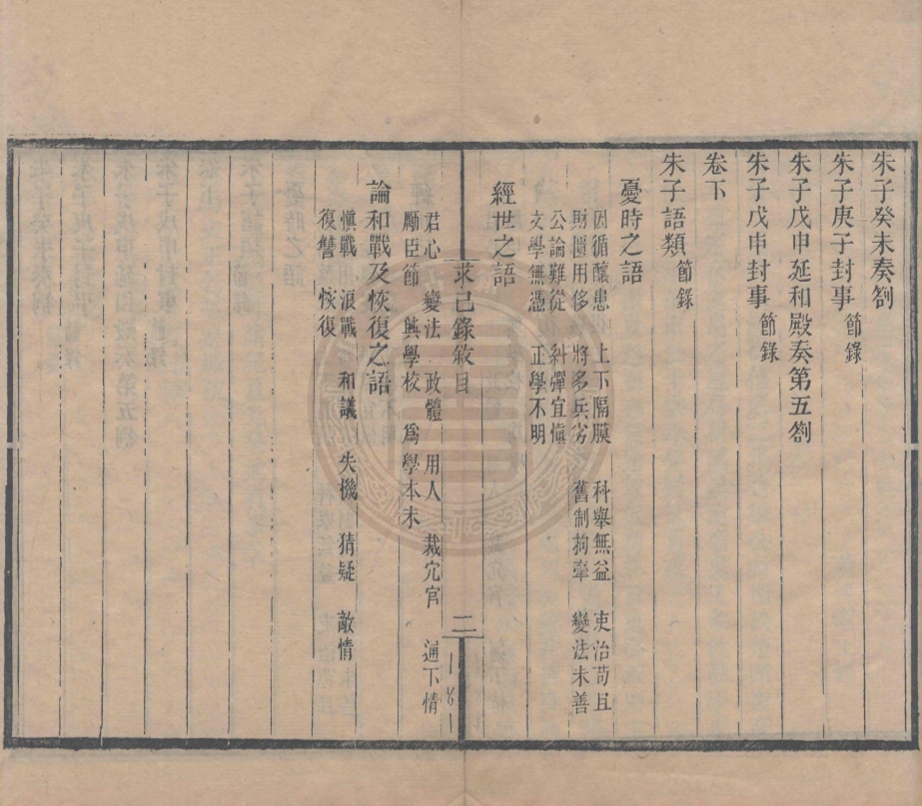 朱子癸未奏劄
朱子庚子封事 節錄
朱子戊申延和殿奏第五劄
朱子戊申封事 節錄
卷下
朱子語類 節錄
憂時之語
因循釀患 上下隔膜 科舉無益 吏治苟且
財匱用侈 將多兵劣 舊制拘牽 變法未善
公論難從 糾彈宜愼
文學無憑 正學不明
經世之語
求己錄敘目
二
君心 變法 政體 用人 裁宂官 通下情
勵臣節 興學校 爲學本末
論和戰及恢復之語
愼戰 浪戰 和議 失機 猜疑 敵情
復讐 恢復